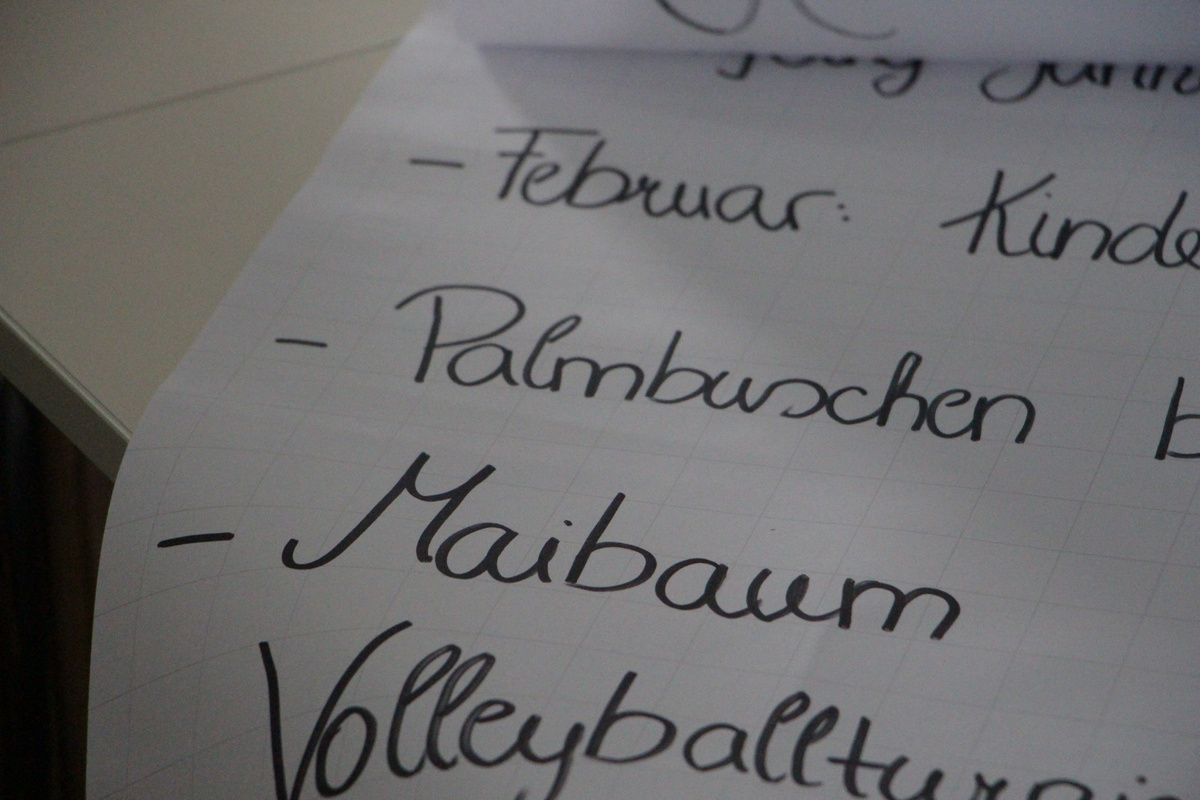 - Februar: Kinde
- Palmbuschen b
- Maibaum
Volleyballturni